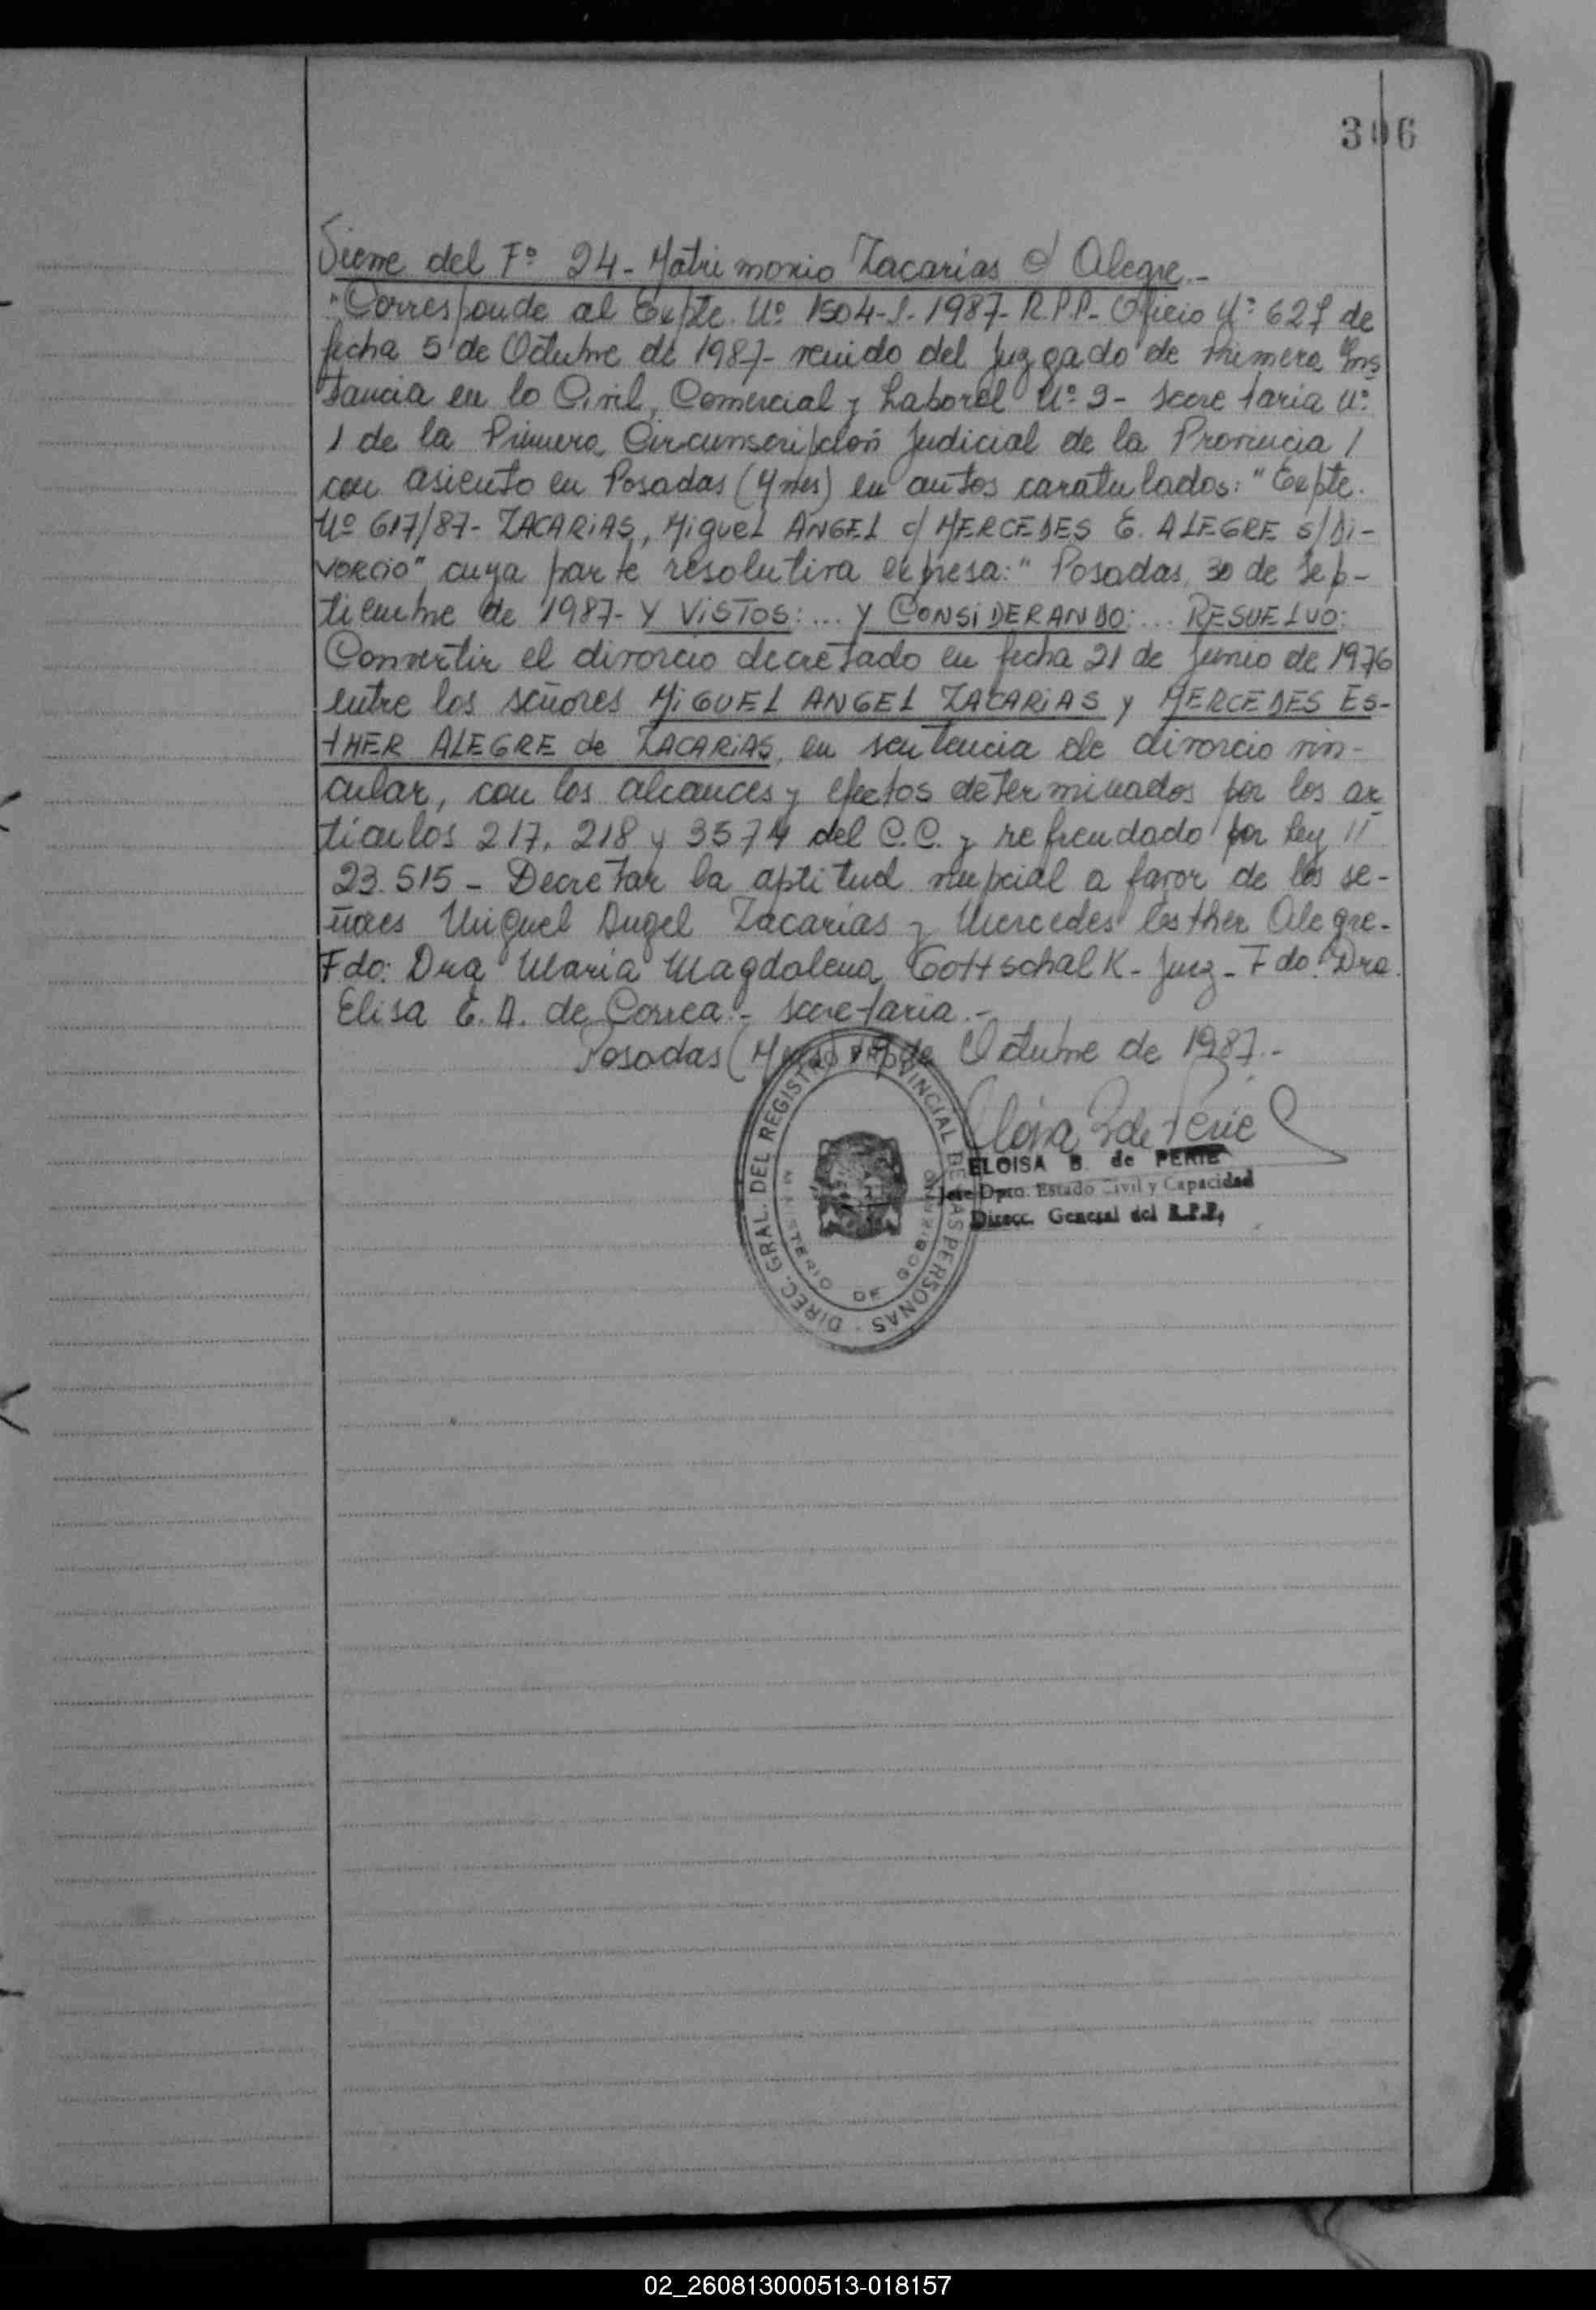 306
Viene del Fº 24- Matrimonio Zacarias c/ Alegre.-
"Corresponde al Expte. Nº 1504-J-1987- R.P.P- Oficio Nº 627 de
fecha 5 de Octubre de 1987- venido del Juzgado de Primera Ins
tancia en lo Civil, Comercial y Laboral Nº 3- Secretaria Nº
1 de la Primera Circunscripción Judicial de la Provincia /
con asiento en Posadas (Mnes) en autos caratulados: "Expte.
Nº 617/87- ZACARIAS, Miguel ANGEL c/ MERCEDES E. ALEGRE s/Di-
vorcio" cuya parte resolutiva expresa: " Posadas, 30 de Sep-
tiembre de 1987- Y VISTOS: ... Y CONSIDERANDO: ... RESUELVO:
Convertir el divorcio decretado en fecha 21 de Junio de 1976
entre los señores MIGUEL ANGEL ZACARIAS y MERCEDES ES-
THER ALEGRE de ZACARIAS, en sentencia de divorcio vin-
cular, con los alcances y efectos determinados por los ar
tículos 217, 218 y 3574 del C.C. y refrendado por Ley //
23.515 - Decretar la aptitud nupcial a favor de los se-
ñores Miguel Angel Zacarias y Mercedes Esther Alegre-
Fdo: Dra Maria Magdalena Gottschalk- Juez- Fdo: Dra
Elisa E. A. de Correa.- Secretaria.-
Posadas (Mnes) de Octubre de 1987.-
ELOISA B. de PERIE
Jefe Dpto. Estado Civil y Capacidad
Direcc. General del R.P.P.
DIREC. GRAL. DEL REGISTRO PROVINCIAL DE LAS PERSONAS
MINISTERIO DE GOBIERNO
02_260813000513-018157